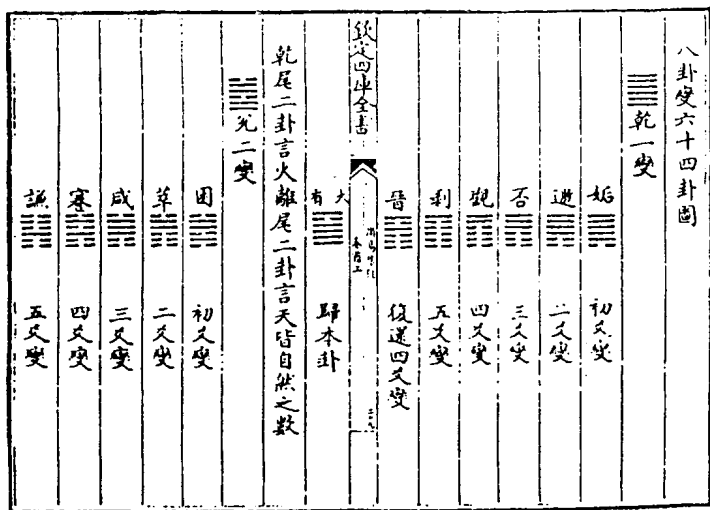 八卦變六十四卦圖
乾一變
姤 初爻變
遯 二爻變
否 三爻變
觀 四爻變
剥 五爻變
晉 復還四爻變
欽定四庫全書
卷首上
大有 歸本卦
乾尾二卦言火離尾二卦言天皆自然之數
兌二變
困 初爻變
萃 二爻變
咸 三爻變
蹇 四爻變
謙 五爻變